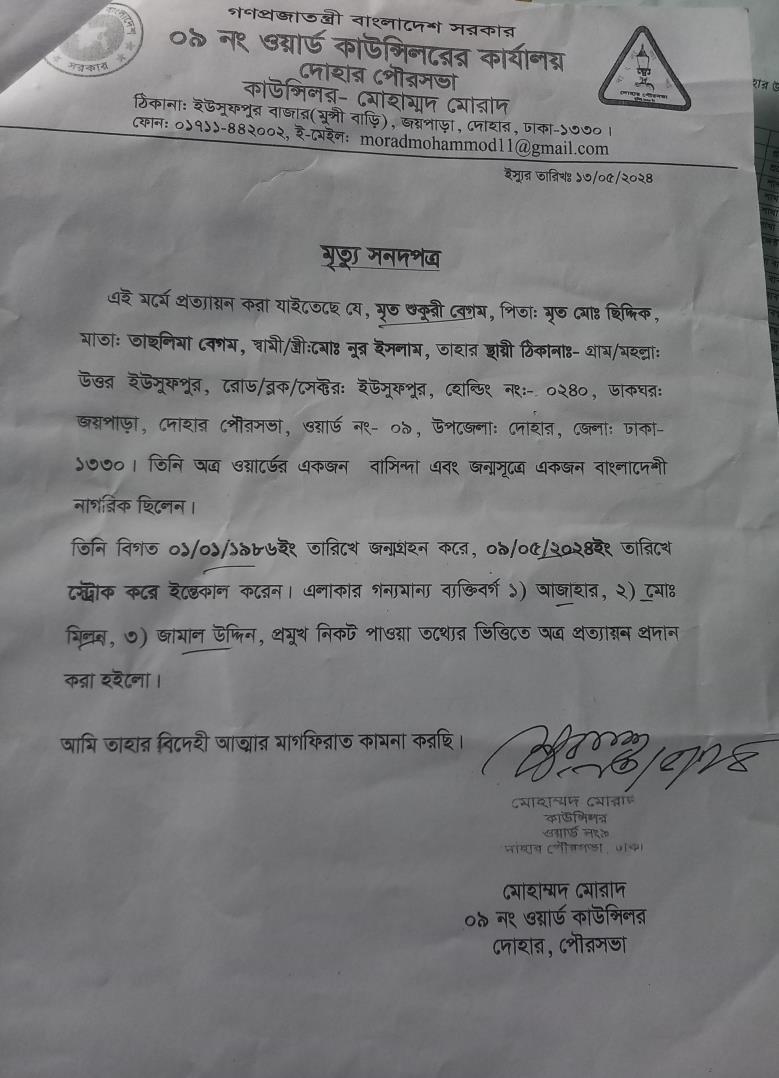 গণপ্রজাতন্ত্রী বাংলাদেশ সরকার
০৯ নং ওয়ার্ড কাউন্সিলরের কার্যালয়
দোহার পৌরসভা
কাউন্সিলর- মোহাম্মদ মোরাদ
ঠিকানা: ইউসুফপুর বাজার(মুন্সী বাড়ি), জয়পাড়া, দোহার, ঢাকা-১৩৩০।
ফোন: ০১৭১১-৪৪২০০২, ই-মেইল: moradmohammod11@gmail.com
ইস্যুর তারিখঃ ১৩/০৫/২০২৪
মৃত্যু সনদপত্র
এই মর্মে প্রত্যায়ন করা যাইতেছে যে, মৃত শুকুরী বেগম, পিতা: মৃত মোঃ ছিদ্দিক,
মাতা: তাছলিমা বেগম, স্বামী/স্ত্রী:মোঃ নুর ইসলাম, তাহার স্থায়ী ঠিকানাঃ- গ্রাম/মহল্লা:
উত্তর ইউসুফপুর, রোড/ব্লক/সেক্টর: ইউসুফপুর, হোল্ডিং নং:- ০২৪০, ডাকঘর:
জয়পাড়া, দোহার পৌরসভা, ওয়ার্ড নং- ০৯, উপজেলা: দোহার, জেলা: ঢাকা-
১৩৩০। তিনি অত্র ওয়ার্ডের একজন বাসিন্দা এবং জন্মসূত্রে একজন বাংলাদেশী
নাগরিক ছিলেন।
তিনি বিগত ০১/০১/১৯৮৬ইং তারিখে জন্মগ্রহন করে, ০৯/০৫/২০২৪ইং তারিখে
স্ট্রোক করে ইন্তেকাল করেন। এলাকার গন্যমান্য ব্যক্তিবর্গ ১) আজাহার, ২) মোঃ
মিলন, ৩) জামাল উদ্দিন, প্রমুখ নিকট পাওয়া তথ্যের ভিত্তিতে অত্র প্রত্যায়ন প্রদান
করা হইলো।
আমি তাহার বিদেহী আত্মার মাগফিরাত কামনা করছি।
মোহাম্মদ মোরাদ
কাউন্সিলর
ওয়ার্ড নং৯
দোহার পৌরসভা, ঢাকা
মোহাম্মদ মোরাদ
০৯ নং ওয়ার্ড কাউন্সিলর
দোহার, পৌরসভা